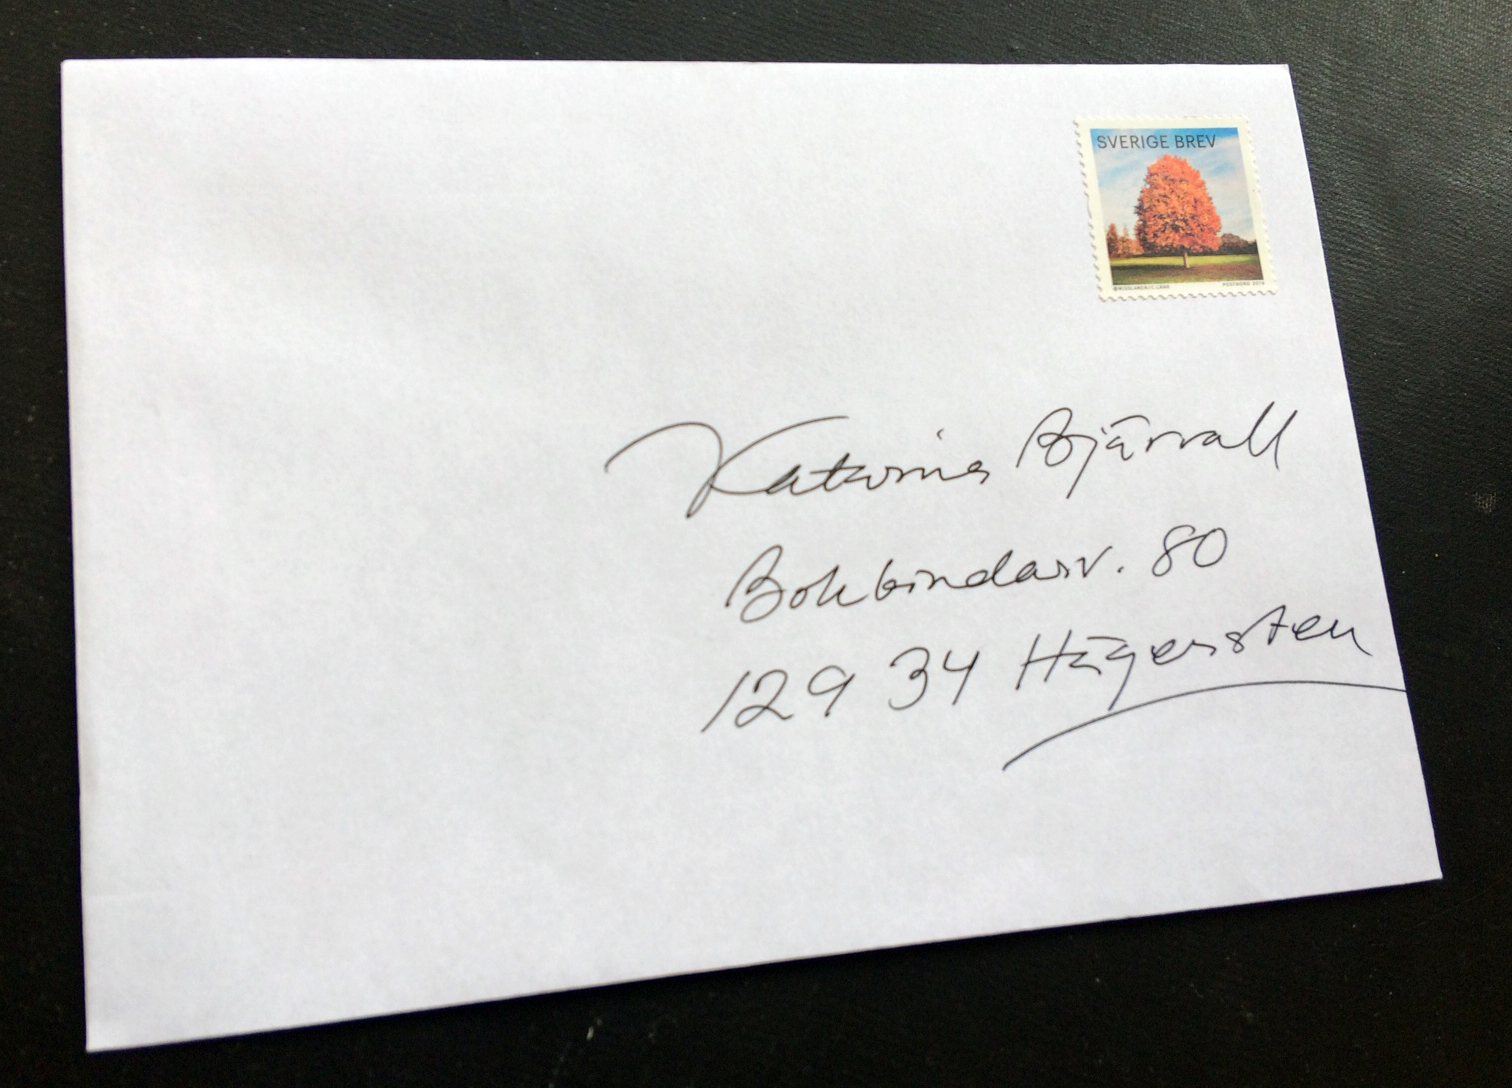 SVERIGE BREV
POSTNORD
Katarina Bjärvall
Bokbindarv. 80
129 34 Hägersten